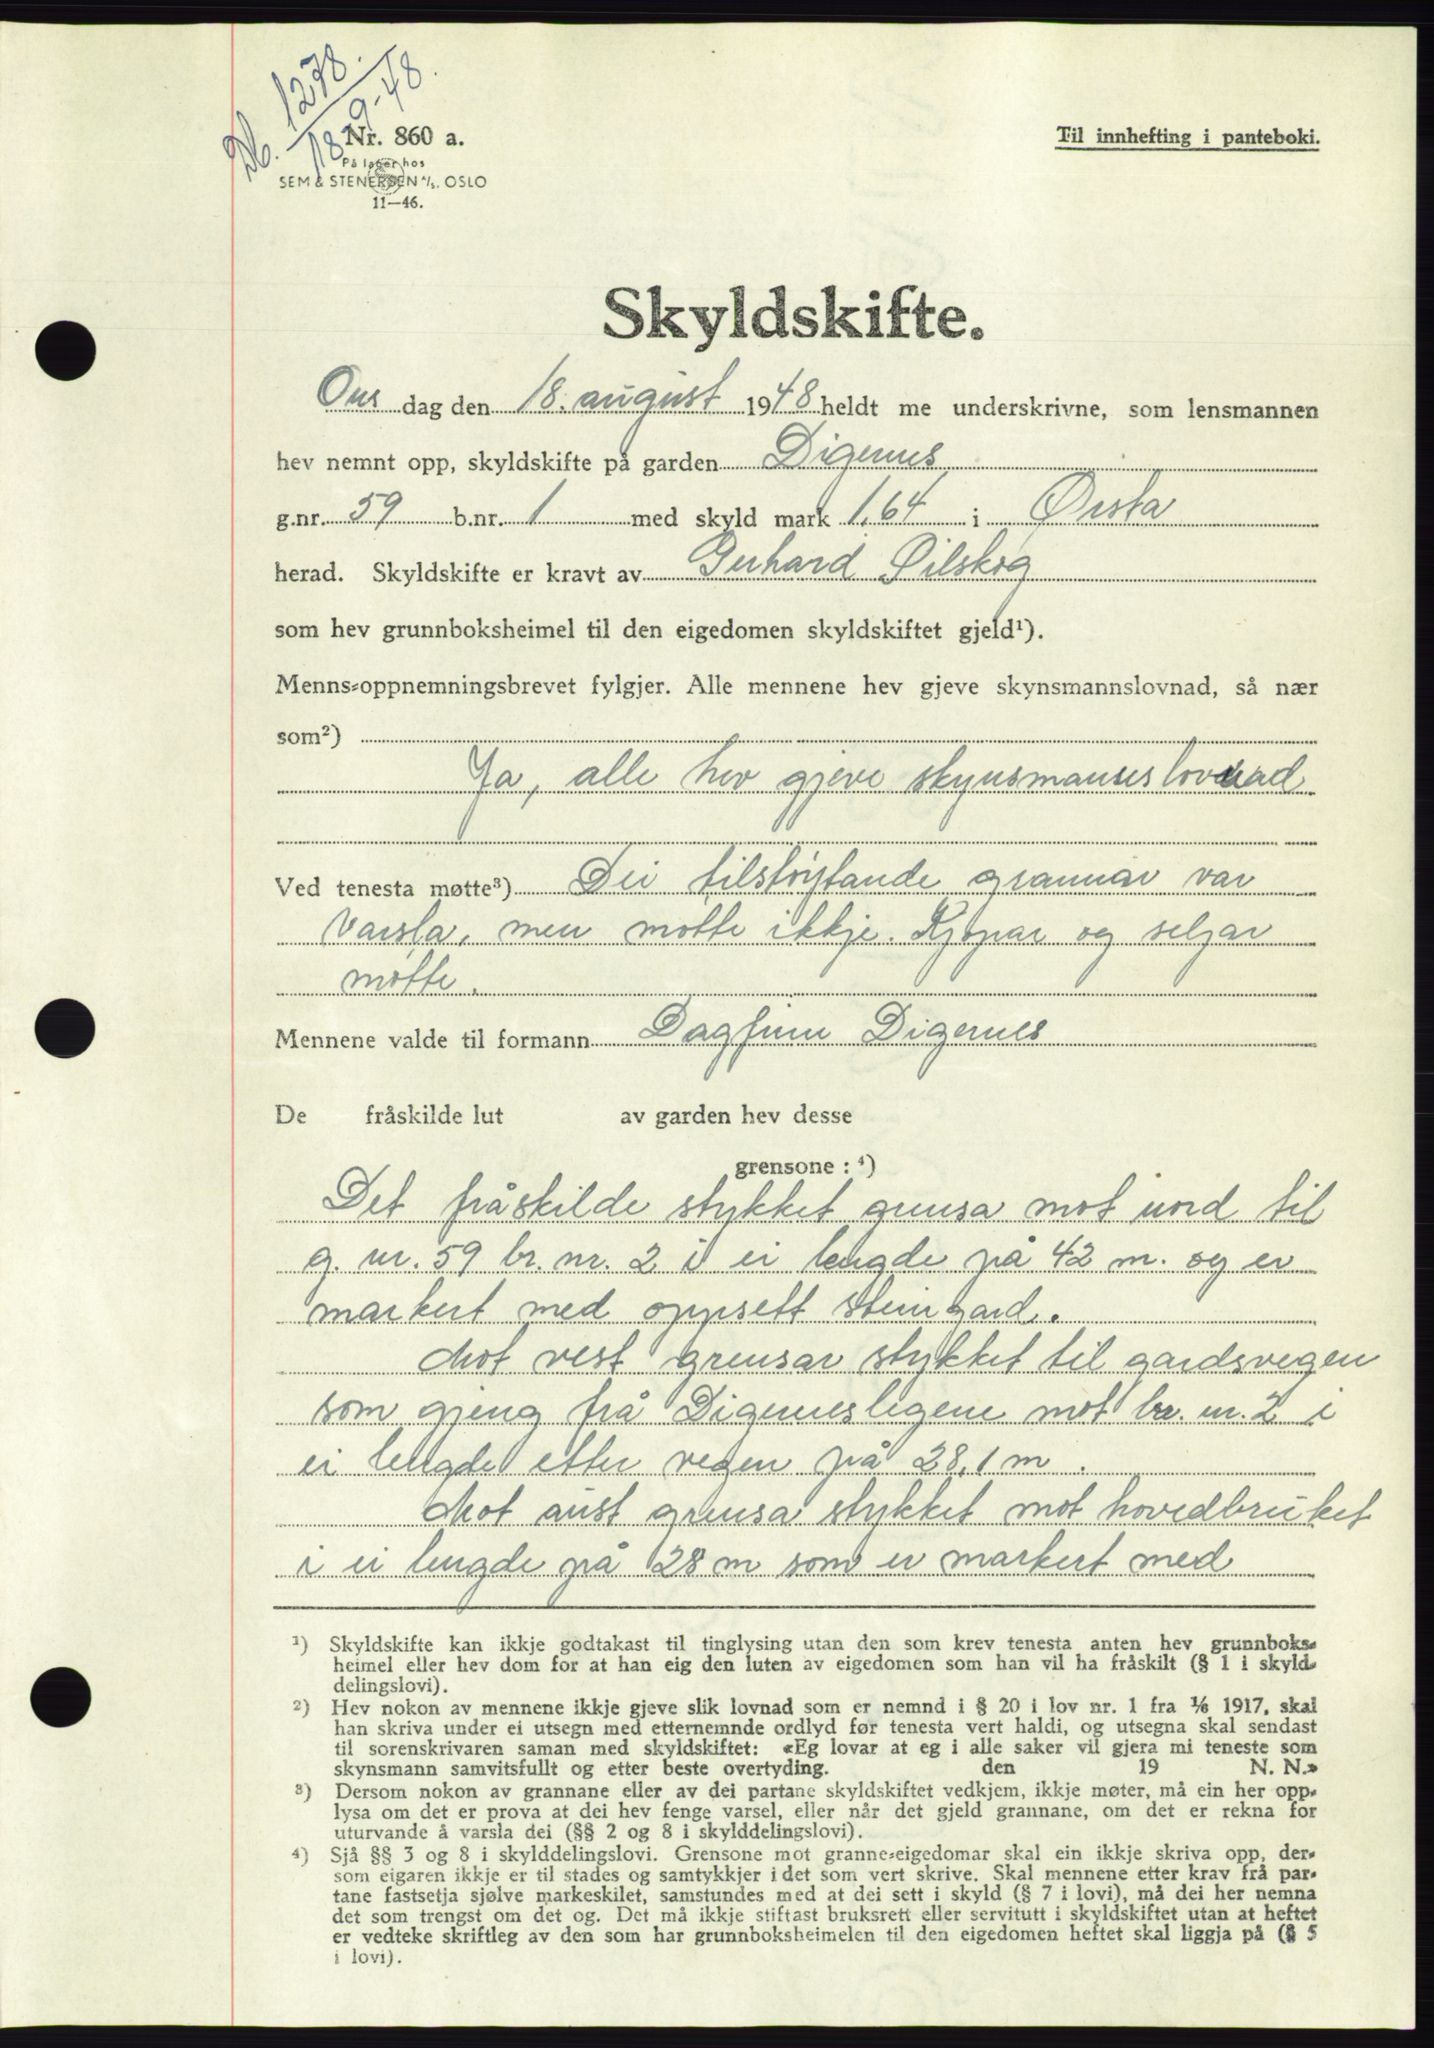 Db. 1278.
18-9-48.
Nr. 860 a.
På lager hos
SEM & STENERSEN A/S. OSLO
11—46.
Til innhefting i panteboki.
Skyldskifte.
Ons dag den 18. august 1948 heldt me underskrivne, som lensmannen
hev nemnt opp, skyldskifte på garden Digernes
g.nr. 59 b.nr. 1 med skyld mark 1,64 i Ørsta
herad. Skyldskifte er kravt av Gerhard Pilskog
som hev grunnboksheimel til den eigedomen skyldskiftet gjeld¹).
Menns-oppnemningsbrevet fylgjer. Alle mennene hev gjeve skynsmannslovnad, så nær
som²)
Ja, alle hev gjeve skynsmanneslovnad
Ved tenesta møtte³) Dei tilstøytande grannar var
varsla, men møtte ikkje. Kjøpar og seljar
møtte.
Mennene valde til formann Dagfinn Digernes
De fråskilde lut av garden hev desse
grensone : ⁴)
Det fråskilde stykket grensa mot nord til
g. nr. 59 br. nr. 2 i ei lengde på 42 m. og er
markert med oppsett steingard.
Mot vest grensar stykket til gardsvegen
som gjeng frå Digerneslegene mot br. nr. 2 i
ei lengde etter vegen på 28,1 m.
Mot aust grensa stykket mot hovedbruket
i ei lengde på 28 m som er markert med
¹) Skyldskifte kan ikkje godtakast til tinglysing utan den som krev tenesta anten hev grunnboks-
heimel eller hev dom for at han eig den luten av eigedomen som han vil ha fråskilt (§ 1 i skyld-
delingslovi).
²) Hev nokon av mennene ikkje gjeve slik lovnad som er nemnd i § 20 i lov nr. 1 fra 1/6 1917, skal
han skriva under ei utsegn med etternemnde ordlyd før tenesta vert haldi, og utsegna skal sendast
til sorenskrivaren saman med skyldskiftet: «Eg lovar at eg i alle saker vil gjera mi teneste som
skynsmann samvitsfullt og etter beste overtyding. den 19 N. N.»
³) Dersom nokon av grannane eller av dei partane skyldskiftet vedkjem, ikkje møter, må ein her opp-
lysa om det er prova at dei hev fenge varsel, eller når det gjeld grannane, om det er rekna for
uturvande å varsla dei (§§ 2 og 8 i skylddelingslovi).
⁴) Sjå §§ 3 og 8 i skylddelingslovi. Grensone mot granne-eigedomar skal ein ikkje skriva opp, der-
som eigaren ikkje er til stades og samtykkjer i det som vert skrive. Skal mennene etter krav frå par-
tane fastsetja sjølve markeskilet, samstundes med at dei sett i skyld (§ 7 i lovi), må dei her nemna
det som trengst om det og. Det må ikkje stiftast bruksrett eller servitutt i skyldskiftet utan at heftet
er vedteke skriftleg av den som har grunnboksheimelen til den eigedomen heftet skal liggja på (§ 5
i lovi).